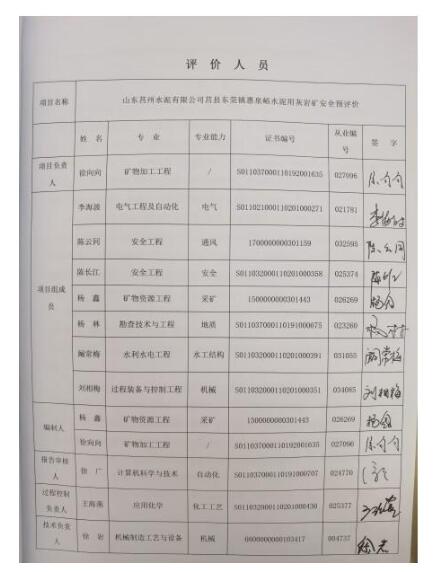 评价人员
项目名称 山东莒州水泥有限公司莒县东莞镇惠泉峪水泥用灰岩矿安全预评价
姓名 专业 专业能力 证书编号 从业编号 签字
项目负责人 徐向向 矿物加工工程 / S011037000110192001635 027096 徐向向
项目组成员 李海波 电气工程及自动化 电气 S011021000110201000271 021781 李海波
陈云同 安全工程 通风 1700000000301159 032595 陈云同
陈长江 安全工程 安全 S011032000110201000358 025374
杨鑫 矿物资源工程 采矿 1500000000301443 026269 杨鑫
杨林 勘查技术与工程 地质 S011037000110191000675 023260
阚常梅 水利水电工程 水工结构 S011032000110201000391 031055 阚常梅
刘相梅 过程装备与控制工程 机械 S011032000110201000351 034085 刘相梅
编制人 杨鑫 矿物资源工程 采矿 1500000000301443 026269 杨鑫
徐向向 矿物加工工程 / S011037000110192001635 027096 徐向向
报告审核人 徐广 计算机科学与技术 自动化 S011037000110191000707 024770
过程控制负责人 王海燕 应用化学 化工工艺 S011032000110201000430 025377
技术负责人 徐岩 机械制造工艺与设备 机械 0800000000103417 004737